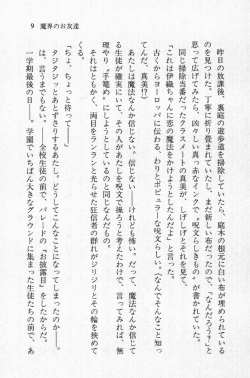 9 魔界のお友達
昨日の放課後、裏庭の遊歩道を掃除していたら、庭木の根元に白い布が埋められている
のを見つけた。丁寧に折り畳まれていましたし、まだ新しい布だったので、「なんだろう?」と
思って広げてみたら、汚々しい真っ赤なインクで、怒りまくしきその
同じ掃除当番だったクラスメートの真美が、しげしげとそれを見つめて、
「これは伊織ちゃんに恋の魔法をかけようとしたんだよ」と言った。
古くからヨーロッパに伝わる、わりとポピュラーな呪文らしい。(なんでそんなこと知っ
てんだ、真美!?)
あたしは魔法なんか信じない。信じない――けれども怖い。だって、魔法なんか信じて
る生徒が確実にいて、その人があたしを呪文で操ろうと考えたわけで、言ってみれば、無
理やり〝手籠め〟にしようとしているのと同じなんだもの。
それはともかく、両目をランランと光らせた狂信者の群れがジリジリとその輪
を縮めてくる。
「ちょ、ちょっと待って――」
タジタジっとあとずさりするあたし。どうしてこんなことになってしまったのかー。
は、言うまでもない。全校生徒の前で、パレードの〝お披露目〟をしたからだ。
一学期最後の日――。学園でいちばん大きなグラウンドに集まった生徒たちの前で、あ